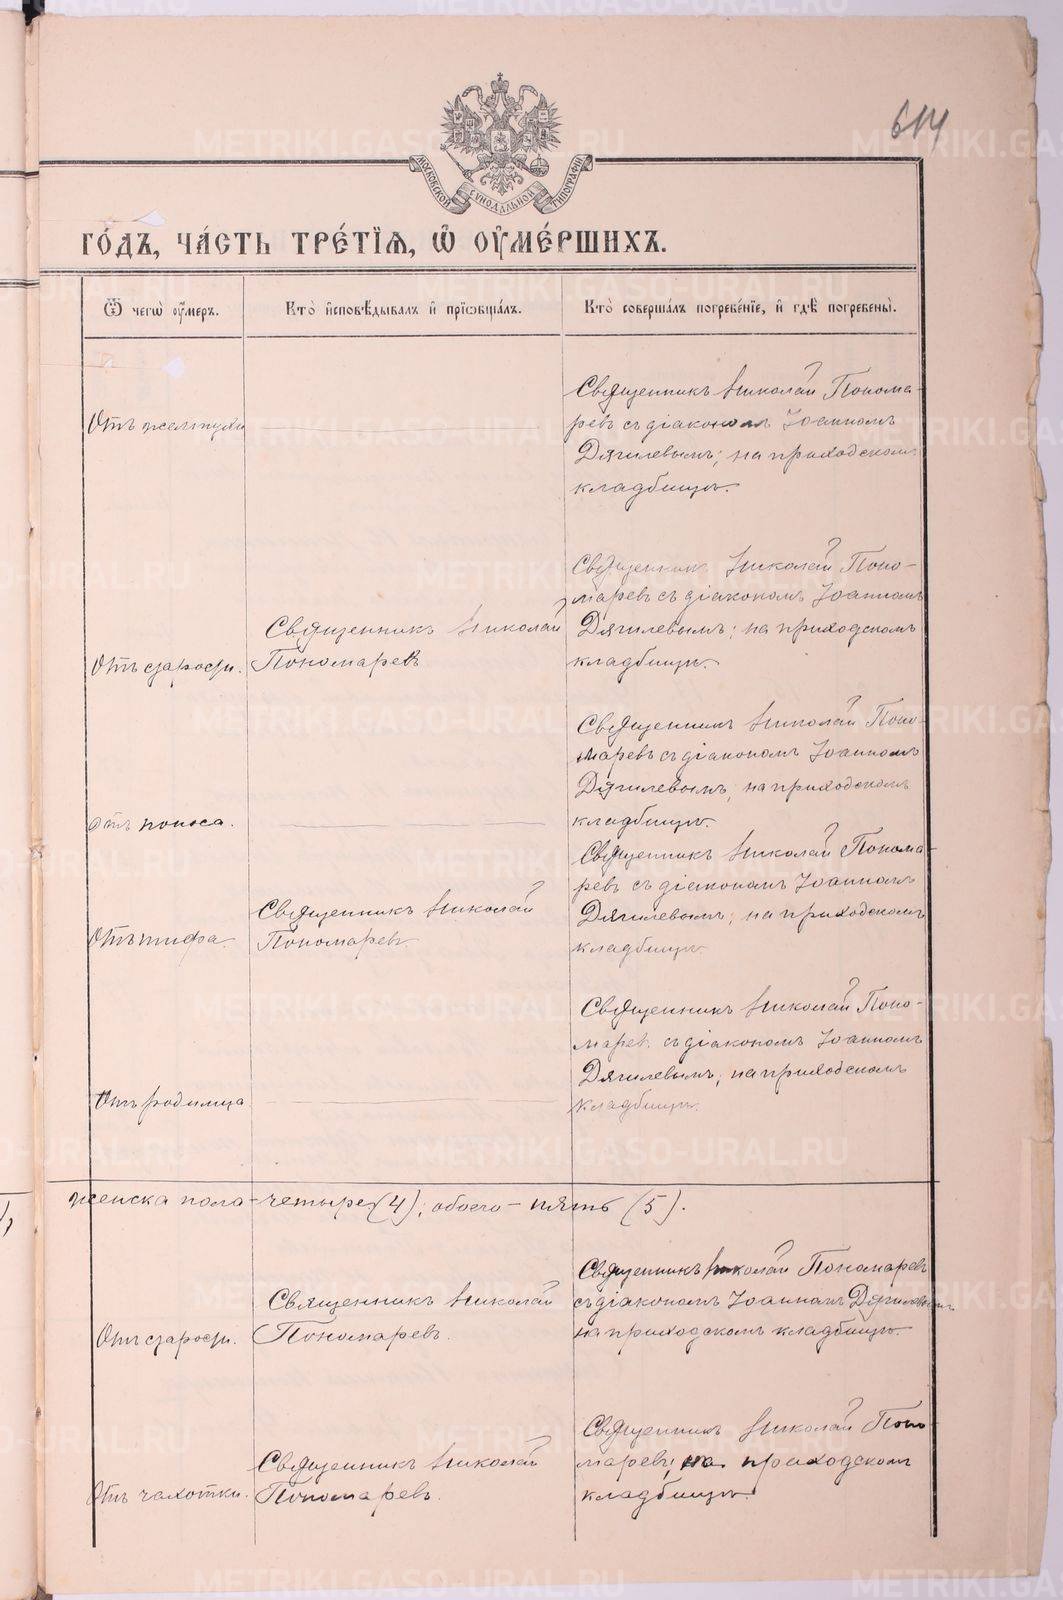 614
МОСКОВСКОЙ СѴНОДАЛЬНОЙ ТИПОГРАФІИ
ГО́ДЪ, ЧА́СТЬ ТРЕ́ТІѦ, Ѡ҆ ОУ҆МЕ́РШИХЪ.
Ѿ чегѡ̀ оу҆́меръ.
Кто̀ и҆сповѣ́дывалъ и҆ прїѻбща́лъ.
Кто̀ соверша́лъ погребе́нїе, и҆ гдѣ̀ погребены̀.
Отъ желтухи
Священникъ Николай Понома-
ревъ съ діакономъ Іоанномъ
Дягилевымъ; на приходскомъ
кладбищѣ.
Отъ старости.
Священникъ Николай
Пономаревъ
Священникъ Николай Поно-
маревъ съ діакономъ Іоанномъ
Дягилевымъ; на приходскомъ
кладбищѣ.
Отъ поноса.
Священникъ Николай Поно-
маревъ съ діакономъ Іоанномъ
Дягилевымъ, на приходскомъ
кладбищѣ.
Отъ тифа.
Священникъ Николай
Пономаревъ.
Священникъ Николай Понома-
ревъ съ діакономъ Іоанномъ
Дягилевымъ; на приходскомъ
кладбищѣ.
Отъ родимца
Священникъ Николай Поно-
маревъ съ діакономъ Іоанномъ
Дягилевымъ; на приходскомъ
кладбищѣ.
женска пола - четыре (4); обоего - пять (5).
Отъ старости.
Священникъ Николай
Пономаревъ.
Священникъ Николай Пономаревъ
съ діакономъ Іоанномъ Дягилевымъ
на приходскомъ кладбищѣ.
Отъ чахотки.
Священникъ Николай
Пономаревъ.
Священникъ Николай Поно-
маревъ; на приходскомъ
кладбищѣ.
METRIKI.GASO-URAL.RU